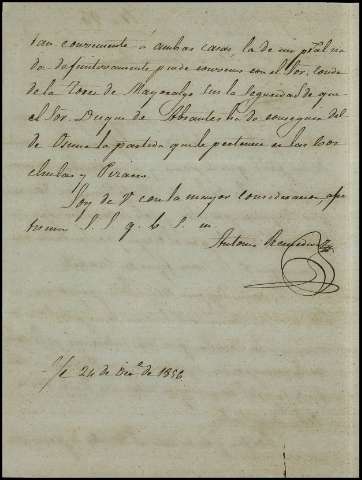 tan conveniente á ambas casas, la de mi pral na
da definitivamente puede convenir con el Sor. Conde
de la Torre de Mayoralgo sin la seguridad de que
el Sor. Duque de Abrantes ha de conseguir del
de Osuna la partida que le pertenece en las
y
Soy de V con la mayor consideracion, afec
S. S. q. b. s. m
Antonio
24 de Dice. de 1856